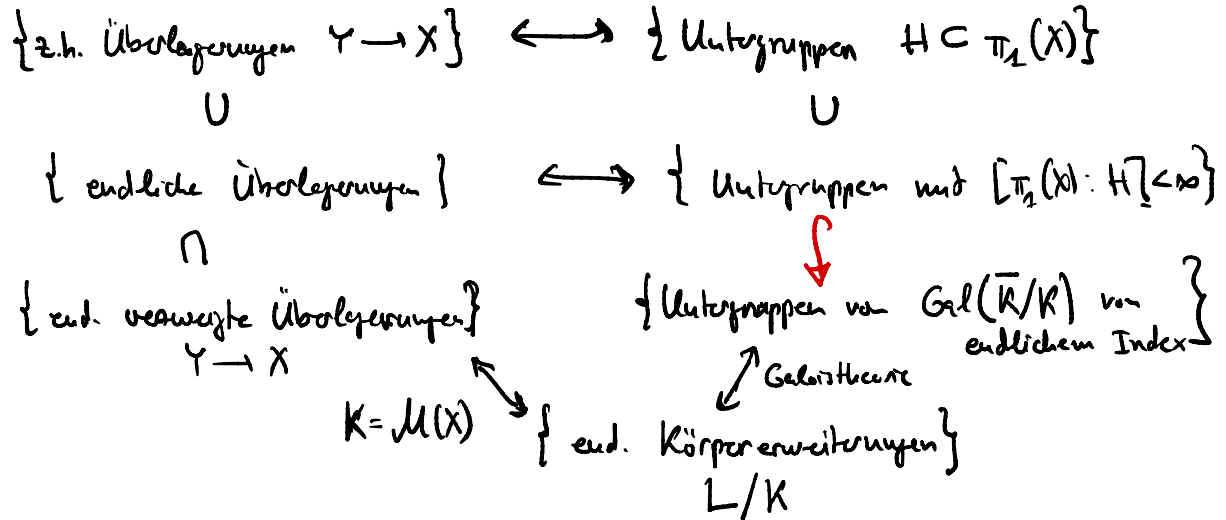 {z.h. Überlagerungen Y → X} ↔ {Untergruppen H ⊂ π₁(X)}
∪ ∪
{endliche Überlagerungen} ↔ {Untergruppen mit [π₁(X) : H] < ∞}
∩
{end. verzweigte Überlagerungen} {Untergruppen von Gal(K̅/K) von
Y → X endlichem Index}
Galoistheorie
K = M(X) {end. Körpererweiterungen}
L/K